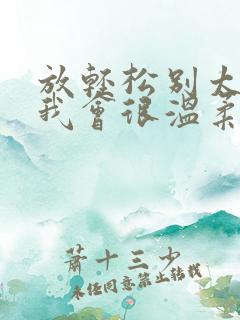 放轻松别太
我会很温柔
萧十三少
未经同意禁止转载